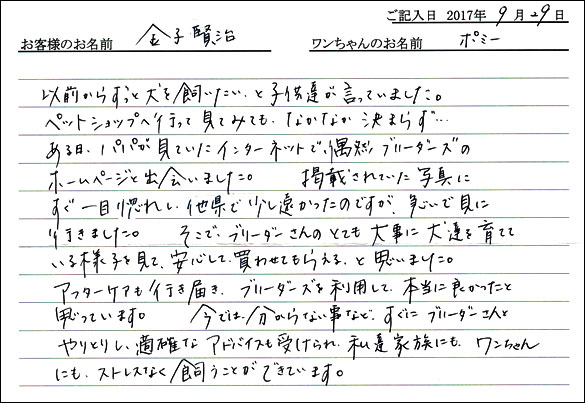 ご記入日 2017年 9月29日
お客様のお名前 金子賢治 ワンちゃんのお名前 ポミー
以前からずっと犬を飼いたい、と子供達が言っていました。
ペットショップへ行って見てみても、なかなか決まらず…
ある日、パパが見ていたインターネットで、偶然ブリーダーズの
ホームページと出会いました。 掲載されていた写真に
すぐ一目惚れし、他県で少し遠かったのですが、急いで見に
行きました。 そこで、ブリーダーさんのとても大事に犬達を育て
いる様子を見て、安心して、買わせてもらえる、と思いました。
アフターケアも行き届き、ブリーダーズを利用して、本当に良かったと
思っています。 今では、分からない事など、すぐにブリーダーさんと
やりとりし、適確なアドバイスも受けられ、私達家族にも、ワンちゃん
にも、ストレスなく飼うことができています。